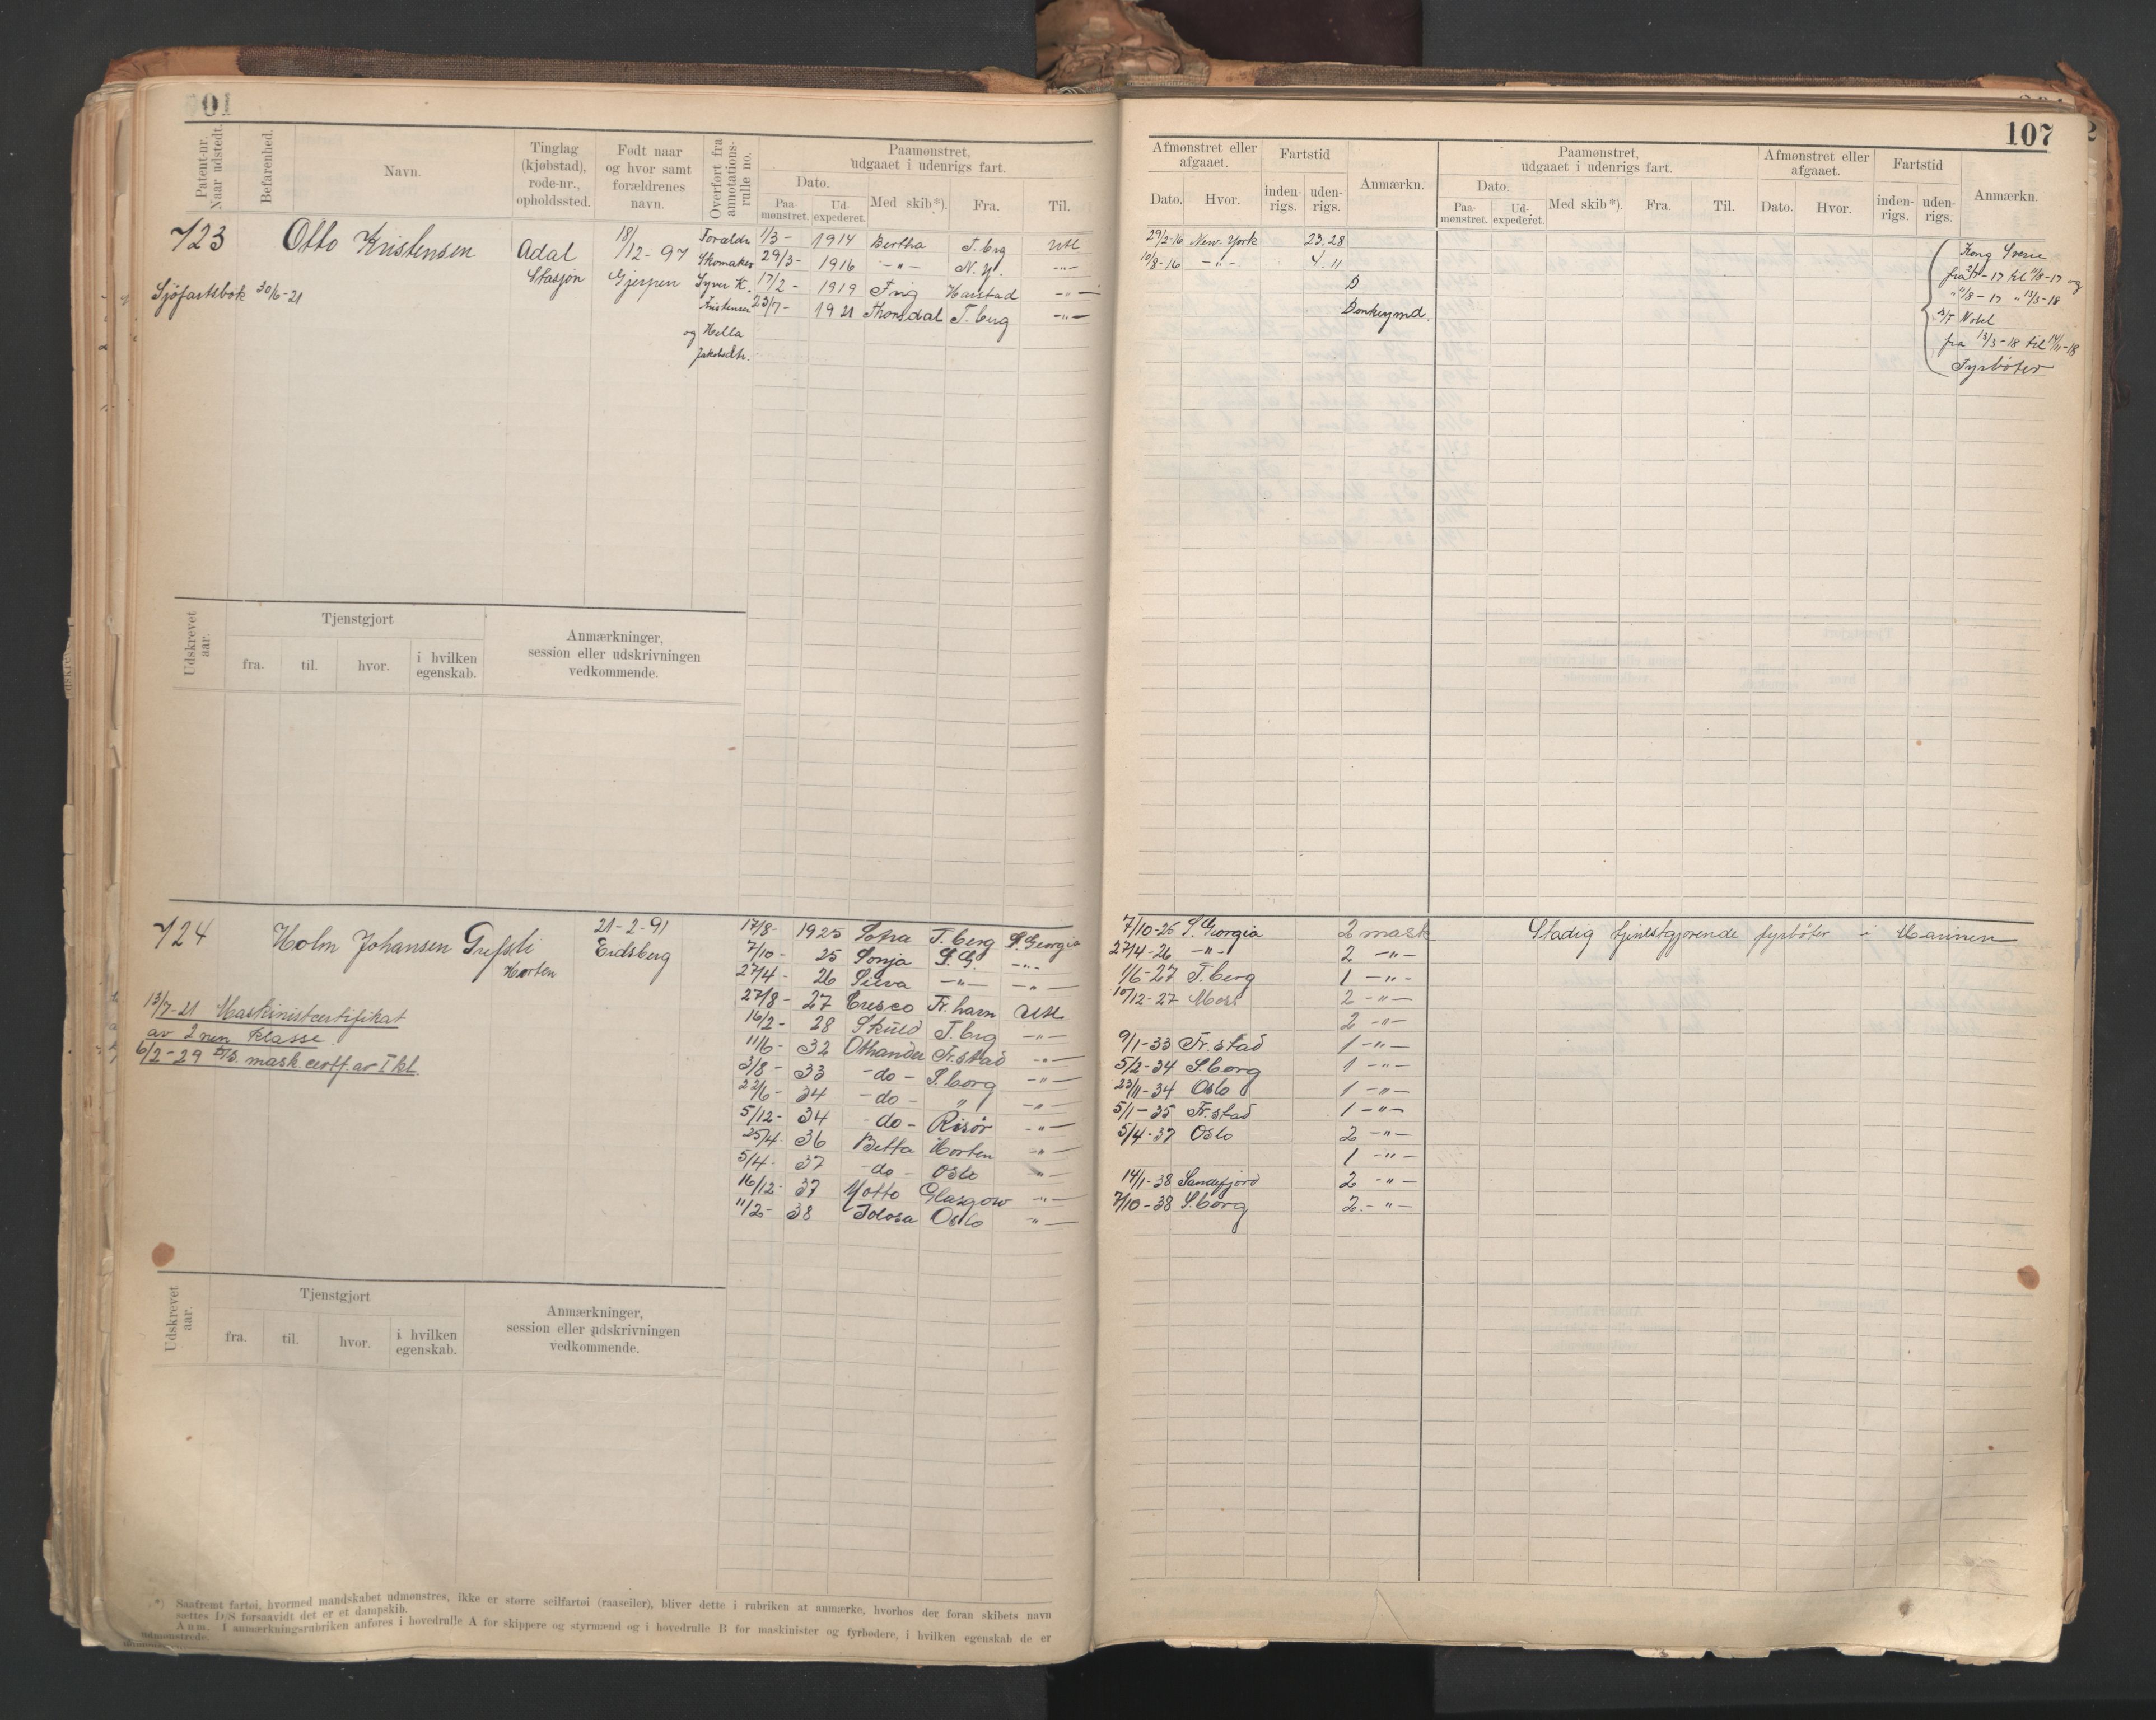 01
107
Patent-nr. Naar udstedt.
Befarenhed.
Navn.
Tinglag (kjøbstad), rode-nr., opholdssted.
Født naar og hvor samt forældrenes navn.
Overført fra annotations-rulle no.
Paamønstret, udgaaet i udenrigs fart.
Dato.
Paa-mønstret.
Ud-expederet.
Med skib*).
Fra.
Til.
Afmønstret eller afgaaet.
Dato.
Hvor.
Fartstid
inden-rigs.
uden-rigs.
Anmærkn.
Paamønstret, udgaaet i udenrigs fart.
Dato.
Paa-mønstret.
Ud-expederet.
Med skib*).
Fra.
Til.
Afmønstret eller afgaaet.
Dato.
Hvor.
Fartstid
inden-rigs.
uden-rigs.
Anmærkn.
723 Otto Kristensen Adal 18/12-97
Stasjon Gjerpen
Sjöfartsbok 30/6-21
Forældr
Skomaker
Syver K.
Kristensen
og Hella
Jakobsdtr.
1/3- 1914 Bertha T.brg Utl 29/2-16 New-York 23.28
29/3- 1916 -"- N.Y. -"- 10/8-16 -"- 4.11
17/2- 1919 Frig Harstad -"- D
23/7- 1921 Thorsdal T.berg -"- Donkeymd.
Kong Sverre
"/8-17 " 13/3-18
Nobel
fra 13/3-18 til 14/11-18
Fyrböter
Udskrevet aar.
Tjenstgjort
fra.
til.
hvor.
i hvilken egenskab.
Anmærkninger, session eller udskrivningen vedkommende.
724 Holm Johansen Grefsli 21-2-91
Horten Eidsberg
13/7-21 Maskinistcertifikat
av 2nen klasse
6/2-29 mask.certf. av I kl.
17/8- 1925 Sotra T.berg S.Georgia 7/10-25 S.Georgia 2 mask Stadig tjenestgjörende fyrböter i Marinen
7/10- 25 Sonja S.G. -"- 27/4-26 -"- 2 -"-
27/4- 26 Silva -"- -"- 1/6-27 T.berg 1 -"-
27/8- 27 Cresco Fr.havn Utl 10/12-27 Moss 2 -"-
16/2- 28 Skuld T.brg -"- 2 -"-
11/6- 32 Othander Fr.stad -"- 9/1-33 Fr.stad 1 -"-
3/8- 33 -do- S.borg -"- 5/2-34 S.borg 1 -"-
22/6- 34 -do- " -"- 23/11-34 Oslo 1 -"-
5/12- 34 -do- Risör -"- 5/1-35 Fr.stad 1 -"-
25/4- 36 Betta Horten -"- 5/4-37 Oslo 2 -"-
5/4- 37 -do- Oslo -"- 1 -"-
16/12- 37 Motto Glasgow -"- 14/1-38 Sandefjord 2 -"-
11/2- 38 Tolosa Oslo -"- 7/10-38 S.borg 2.-"-
Udskrevet aar.
Tjenstgjort
fra.
til.
hvor.
i hvilken egenskab.
Anmærkninger, session eller udskrivningen vedkommende.
*) Saafremt fartøi, hvormed mandskabet udmønstres, ikke er større seilfartøi (raaseiler), bliver dette i rubriken at anmærke, hvorhos der foran skibets navn
sættes D/S forsaavidt det er et dampskib.
Anm. I anmærkningsrubriken anføres i hovedrulle A for skippere og styrmænd og i hovedrulle B for maskinister og fyrbødere, i hvilken egenskab de er
udmønstrede.